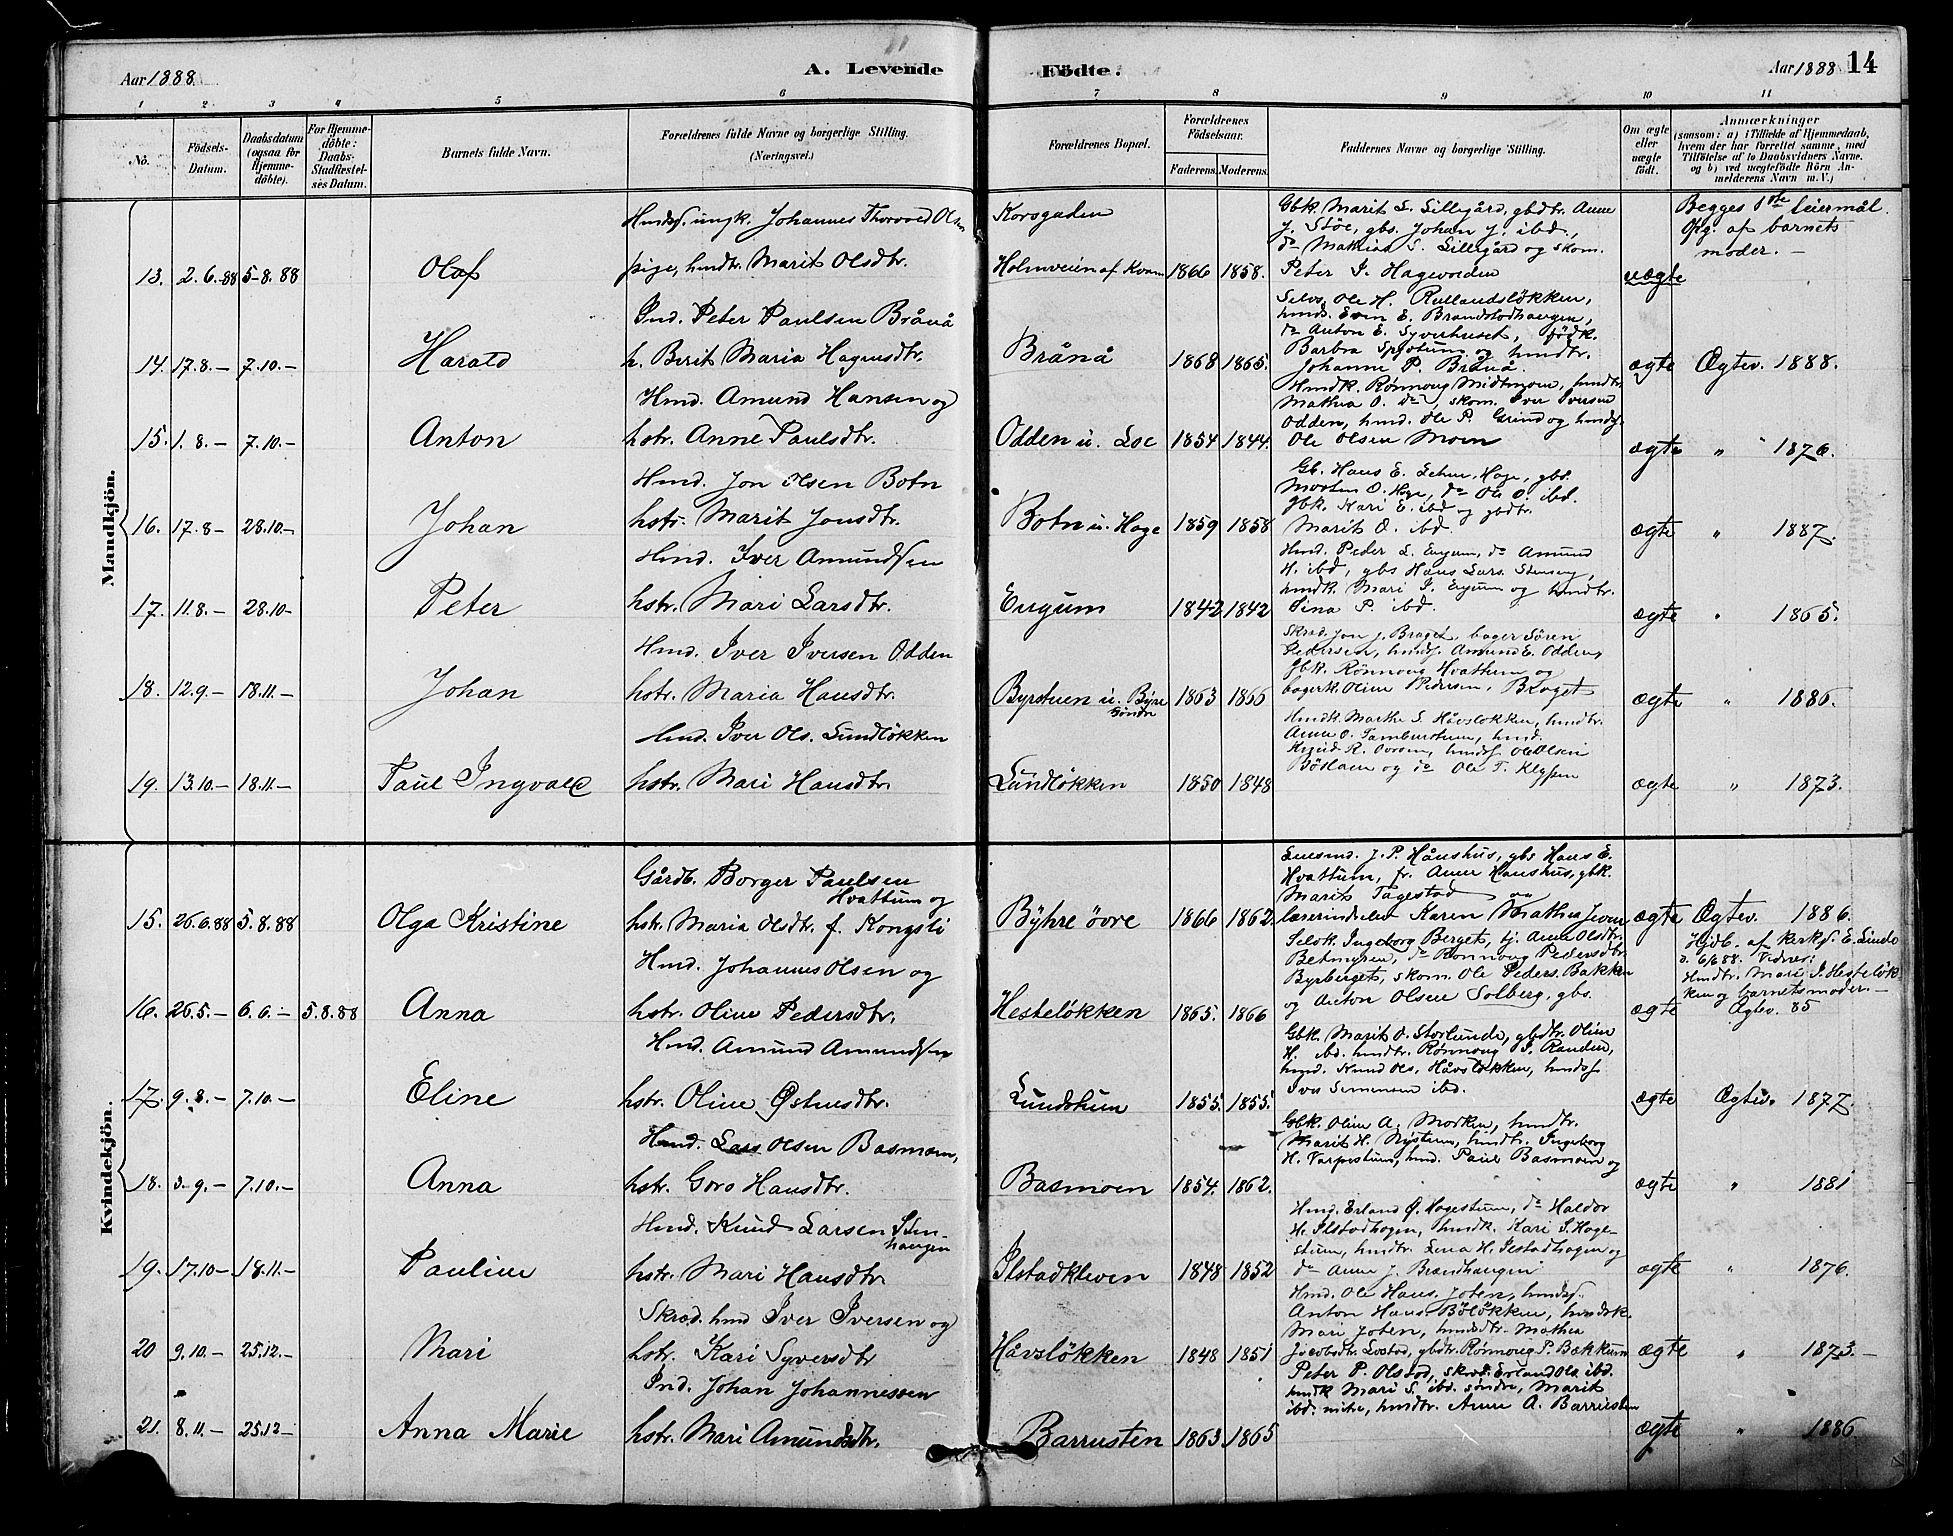 Aar 1888.
A. Levende Födte.
Aar 1888 14
1 2 3 4 5 6 7 8 9 10 11
No.
Födsels-Datum.
Daabsdatum (ogsaa for Hjemmedöbte).
For Hjemmedöbte: Daabs-Stadfæstelses Datum.
Barnets fulde Navn.
Forældrenes fulde Navne og borgerlige Stilling. (Næringsvei.)
Forældrenes Bopæl.
Forældrenes Födselsaar.
Faderens. Moderens.
Faddernes Navne og borgerlige Stilling.
Om ægte eller uægte födt.
Anmærkninger
(saasom: a) i Tilfælde af Hjemmedaab, hvem der har forrettet samme, med Tilföielse af to Daabsvidners Navne. og b) ved uægtefödte Börn Anmelderens Navn m. V.)
Mandkjön.
13. 2.6.-88 5-8.88 Olaf
Johannes Thorvald Olsen
pige, hmdtr. Marit Olsdtr.
Korsgaden
Holmveien af Kvam 1866 1858.
Gbk. Marit L. Lillegård, gbdtr. Anne
J. Stöe, gbs. Johan J. ibd.,
do Mathias S. Lillegård og skom.
Peter I. Hagevolden
uægte
Begges 1ste leiermål.
Opg. af barnets
moder. —
14. 17.8.— 7.10.— Harald
Ind. Peter Paulsen Brånå
h. Berit Maria Hagensdtr.
Brånå 1868 1865.
Selvs. Ole H. Rullandsløkken,
hmds. Even E. Brandstadhaugen,
do Anton E. Syverhuset,
Johanne P. Brånå.
ægte Ægtev. 1888.
15. 1.8.— 7.10.— Anton
Hmd. Amund Hansen og
hstr. Anne Paulsdtr.
Odden u. Loe 1854 1844.
Hmdk. Rønnoug Midtmoen, hmdtr.
Mathea O. do, skom. Iver Iversen
Odden, hmd. Ole P. Grind og hmds.
Ole Olsen Moen
ægte " 1876.
16. 17.8— 28.10— Johan
Hmd. Jon Olsen Botn
hstr. Marit Jonsdtr.
Botn u. Hage 1859 1858
Morten O. Hage, do Ole O. ibd.
gbk. Kari E. ibd og gbdtr.
Marit O. ibd.
ægte " 1887.
17. 11.8— 28.10— Peter
Hmd. Iver Amundsen
hstr. Mari Larsdtr.
Engum 1842 1842
Hmd. Peder L. Engum, do Amund
H. ibd, gbs Hans Lars.
hmdk. Mari I. Engum og hmdtr.
Sina P. ibd.
ægte " 1865.
18. 12.9.— 18.11.— Johan
Hmd. Iver Iversen Odden
hstr. Maria Hansdtr.
Byrstuen u. Byre
Söndre 1863 1866
Skræd. Jon J. Braget, bager Sören
Pedersen, hmds. Amund E. Odden,
Gbk. Rønnoug Hvattum og
bagerk. Oline Pedersen, Braget
ægte " 1886.
19. 13.10.— 18.11.— Paul Ingvald
Hmd. Iver Ols. Lundløkken
hstr. Mari Hansdtr.
Lundløkken 1850 1848
Hmdk. Marthe S. Håvsløkken, hmdtr.
hmds. Ole Olsen
ægte " 1873.
Kvindekjön.
15. 26.6.88 5.8.88 Olga Kristine
Gårdb. Borger Paulsen
Hvattum og
hstr. Maria Olsdtr. f. Kongsli
Byhre övre 1866 1862.
Lensmd. J. P. Hånshus, gbs Hans E.
Hvattum, fr. Anne Hånshus, gbk.
Marit Tagestad og
lærerinde Karen Mathea
ægte Ægtev. 1886.
16. 26.5.— 6.6.— 5.8.88 Anna
Hmd. Johannes Olsen og
hstr. Oline Pedersdtr.
Hesteløkken 1865. 1866
Selvk. Ingeborg Berget, tj. Anne Olsdtr.
Betmyren, do Rønnoug Pedersdtr.
Byrberget, skom. Ole Peders. Bakken
og Anton Olsen Solberg, gbs.
ægte
Hjdb. af kirks. E. Linde
d. 6/6 88. Vidner:
Hmdtr. Mari J. Hesteløkken
og barnets moder.—
Ægtev. 85
17. 9.8.— 7.10.— Eline
Hmd. Amund Amundsen
hstr. Oline Østensdtr.
Lundstuen 1855. 1855.
Gbk. Marit O. Storlunde, gbdtr. Oline
H. ibd. hmdtr. Rønnoug I. Randen,
hmd. Knud Ols. Håvsløkken, hmds.
Iver Simensen ibd.
ægte Ægtev. 1877.
18. 3-9.— 7.10.— Anna
Hmd. Lars Olsen Basmoen,
hstr. Goro Hansdtr.
Basmoen 1854. 1862.
Gbk. Oline A. Morken, hmdtr.
Marit H. Nystuen, hmdtr. Ingeborg
H. Varpestuen, hmd. Paul Basmoen og
ægte " 1881
19. 17.10— 18.11.— Pauline
Hmd. Knud Larsen Stenhaugen
hstr. Mari Hansdtr.
Ilstadkleven 1848 1852
Hmd. Erland O. Hagestuen, do Haldor
H. Ilstadhagen, hmdk. Kari I. Hagestuen,
hmdtr. Lena H. Ilstadhagen og
do Anne J. Brændhaugen
ægte " 1876.
20 9.10.— 25.12.— Mari
Skræd. hmd Iver Iversen og
hstr. Kari Syversdtr
Håvsløkken 1848 1851
Hmd. Ole Hans. Joten, hmds.
Anton Hans. Böløkken, hmdsk.
Mari Joten, hmdsdtr. Mathea
Jacobsdtr. Lostad, gbdtr. Rønnoug P. Bækkum
ægte " 1873.—
21. 8.11.— 25.12— Anna Marie
Ind. Johan Johannessen
hstr. Mari Amundsdtr.
Barrusten 1863 1865
Peter P. Olstad, skræd. Erland Ols. ibd.
hmdk Mari S. ibd. söndre, Marit
ibd. mitre, hmdtr. Anne A. Barrusten
ægte " 1886.